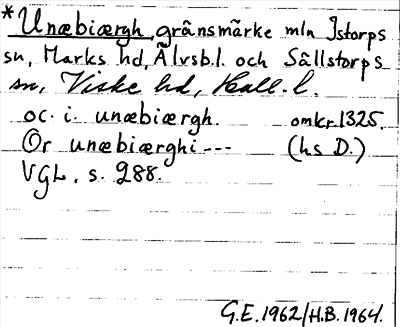 *Unæbiærgh, gränsmärke mln Istorps
sn, Marks hd, Älvsb.l. och Sällstorps
sn, Viske hd, Hall. l.
oc. i. unæbiærgh. omkr.1325.
Or unæbiærghi--- (hs D.)
VGL. s. 288.
G.E. 1962/H.B. 1964.